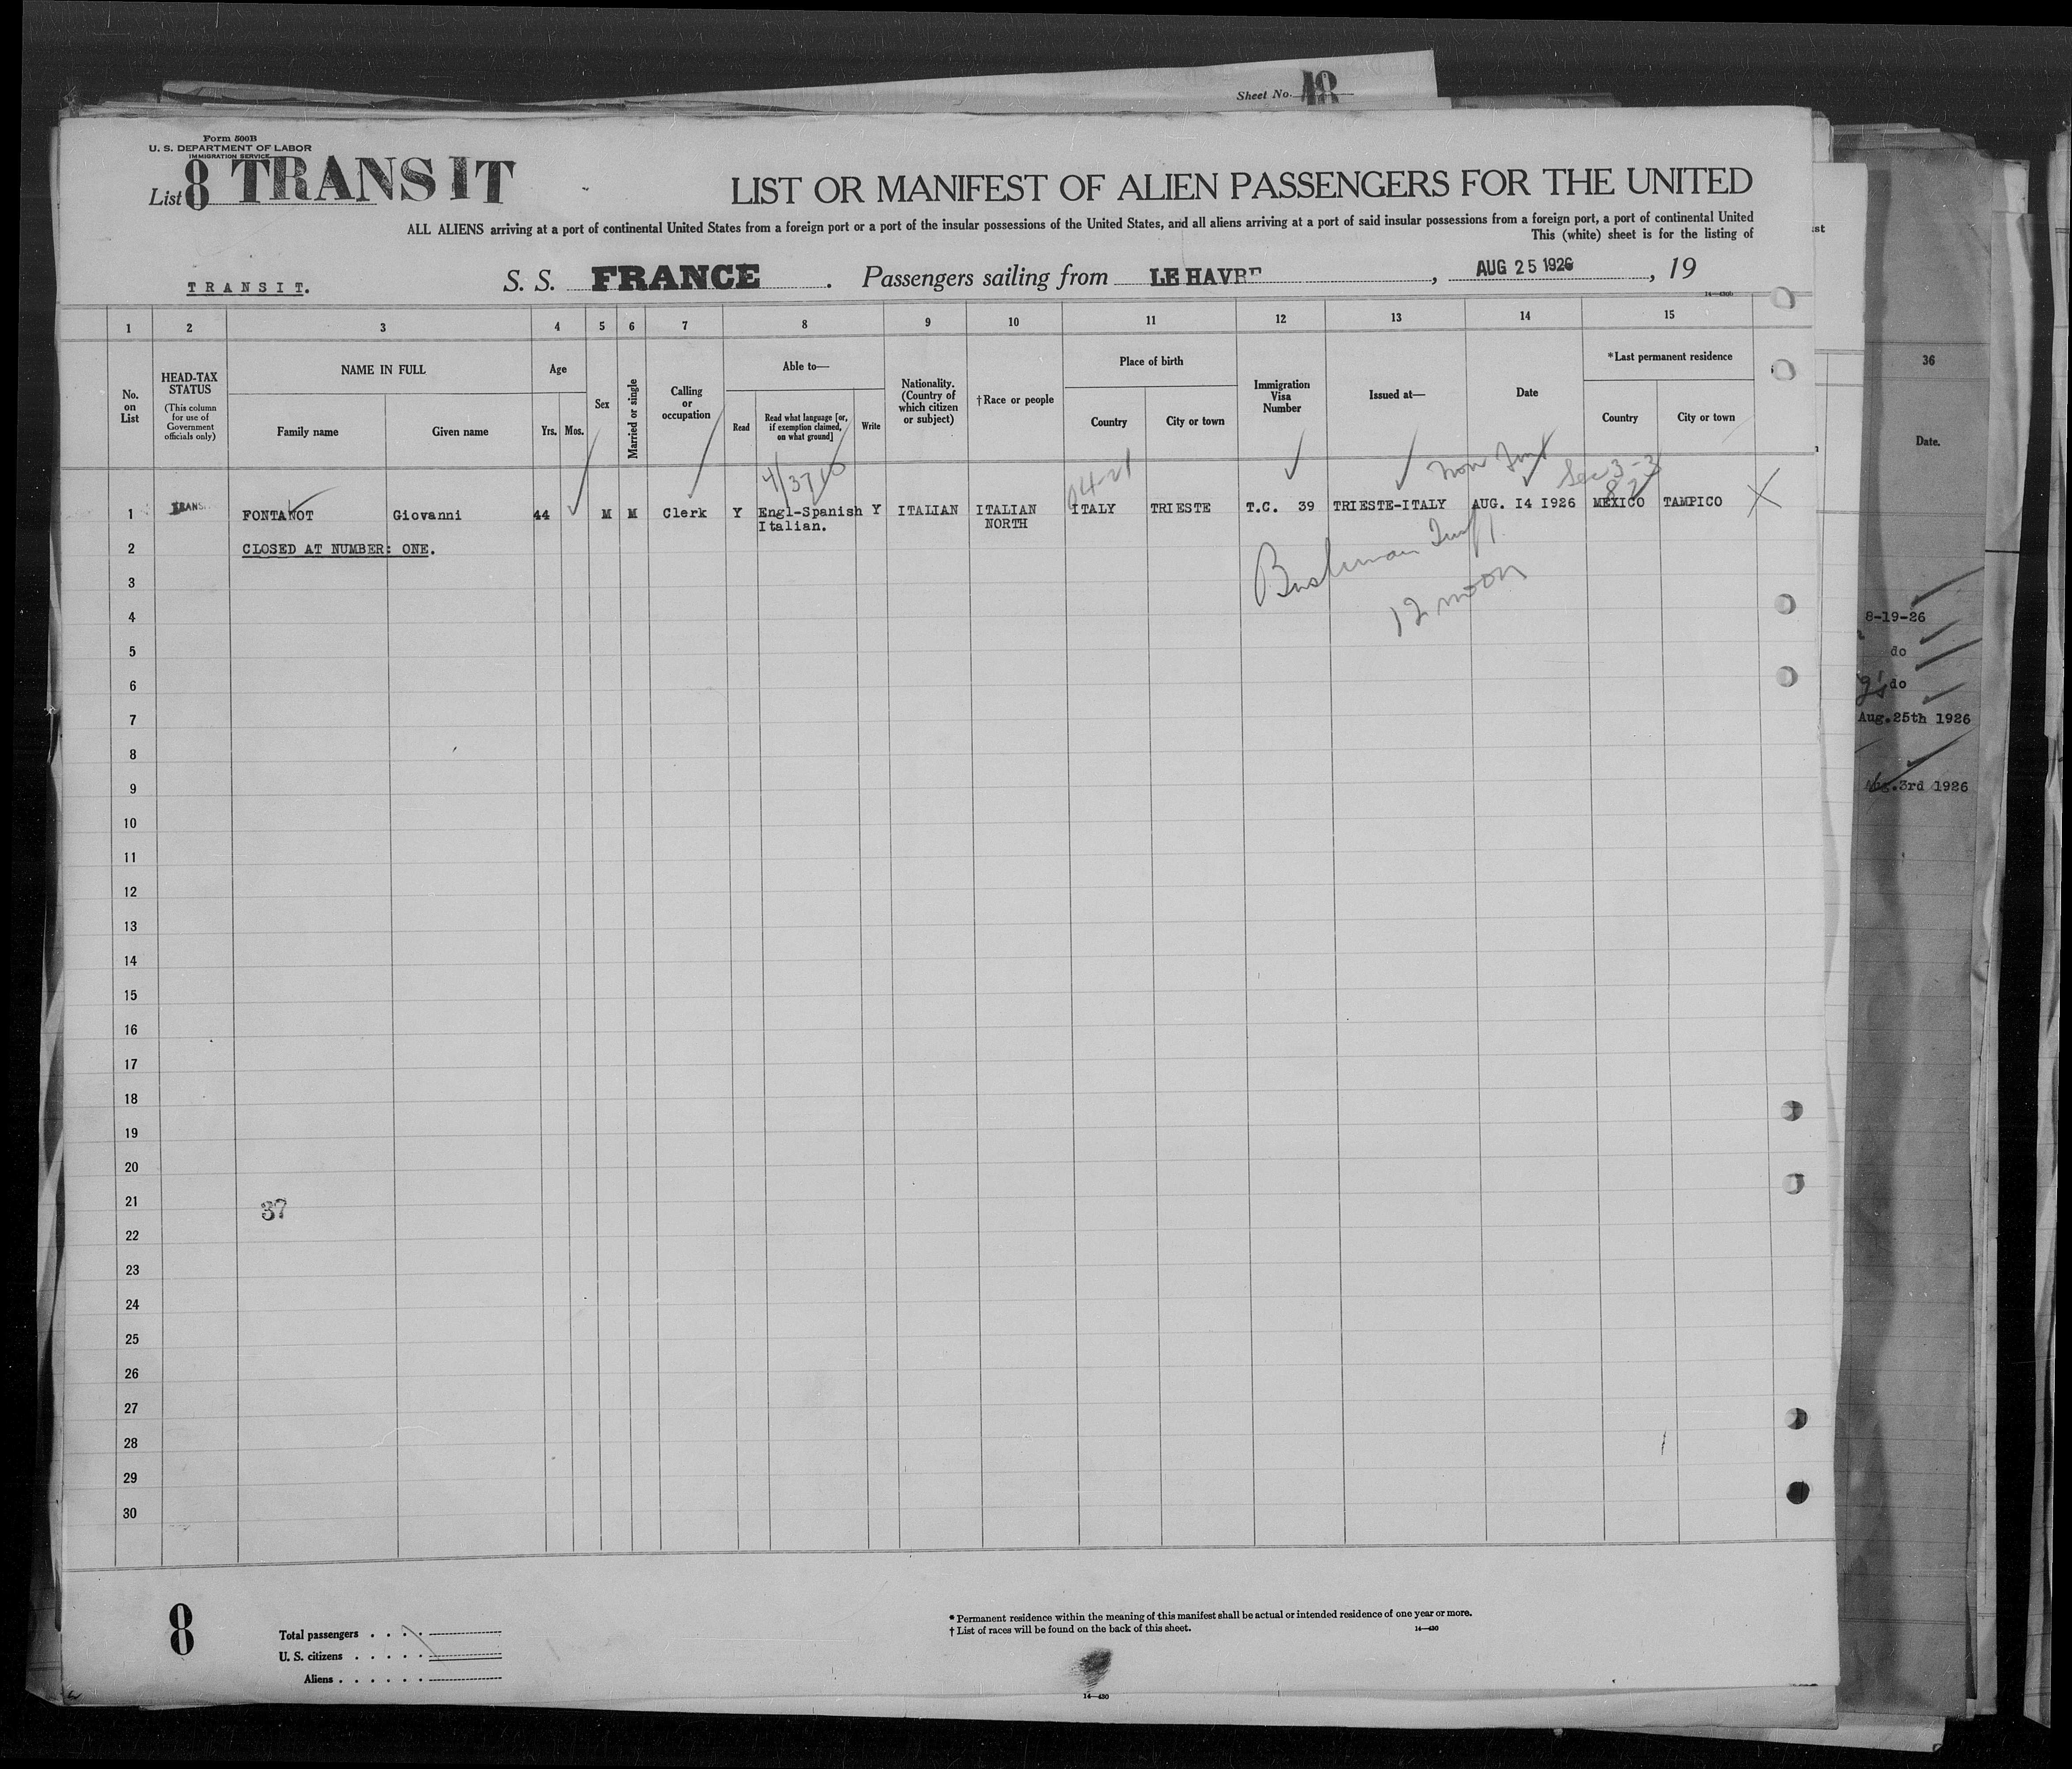 Sheet No. 18
Form 500B
U. S. DEPARTMENT OF LABOR
IMMIGRATION SERVICE
List 8 TRANSIT
LIST OR MANIFEST OF ALIEN PASSENGERS FOR THE UNITED
ALL ALIENS arriving at a port of continental United States from a foreign port or a port of the insular possessions of the United States, and all aliens arriving at a port of said insular possessions from a foreign port, a port of continental United
This (white) sheet is for the listing of
TRANSIT.
S. S. FRANCE. Passengers sailing from LE HAVRE, AUG 25 1926, 19
1 2 3 4 5 6 7 8 9 10 11 12 13 14 15
No. on List
HEAD-TAX STATUS
(This column for use of Government officials only)
NAME IN FULL
Family name Given name
Age
Yrs. Mos.
Sex
Married or single
Calling or occupation
Able to—
Read
Read what language [or, if exemption claimed, on what ground]
Write
Nationality. (Country of which citizen or subject)
†Race or people
Place of birth
Country City or town
Immigration Visa Number
Issued at—
Date
*Last permanent residence
Country City or town
1 TRANS. FONTANOT Giovanni 44 M M Clerk Y Engl-Spanish Y ITALIAN ITALIAN ITALY TRIESTE T.C. 39 TRIESTE-ITALY AUG. 14 1926 MEXICO TAMPICO
Italian. NORTH
2 CLOSED AT NUMBER: ONE.
3
12 noon
4
5
6
7
8
9
10
11
12
13
14
15
16
17
18
19
20
21
37
22
23
24
25
26
27
28
29
30
8
Total passengers
U. S. citizens
Aliens
* Permanent residence within the meaning of this manifest shall be actual or intended residence of one year or more.
† List of races will be found on the back of this sheet.
14—430
14—430
36
Date.
8-19-26
do
do
Aug.25th 1926
Aug.3rd 1926